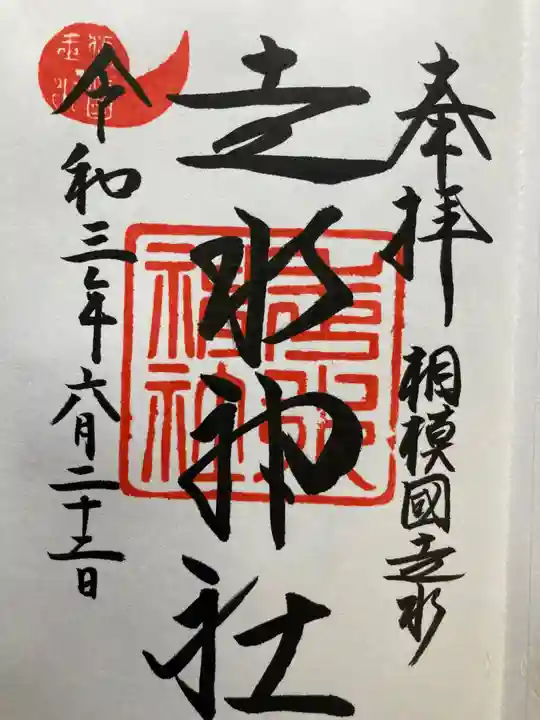 奉拝
相模國走水
走水神社
走水神社
令和三年六月二十二日